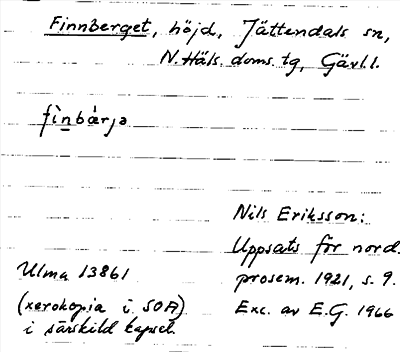 Finnberget, höjd, Jättendals sn,
N. Häls. doms. tg, Gävl. l.
fìnbæ̀rja
Nils Eriksson:
Uppsats för nord.
prosem. 1921, s. 9.
Exc. av E.G. 1966
Ulma 13861
(xerokopia i SOA)
i särskild kapsel.